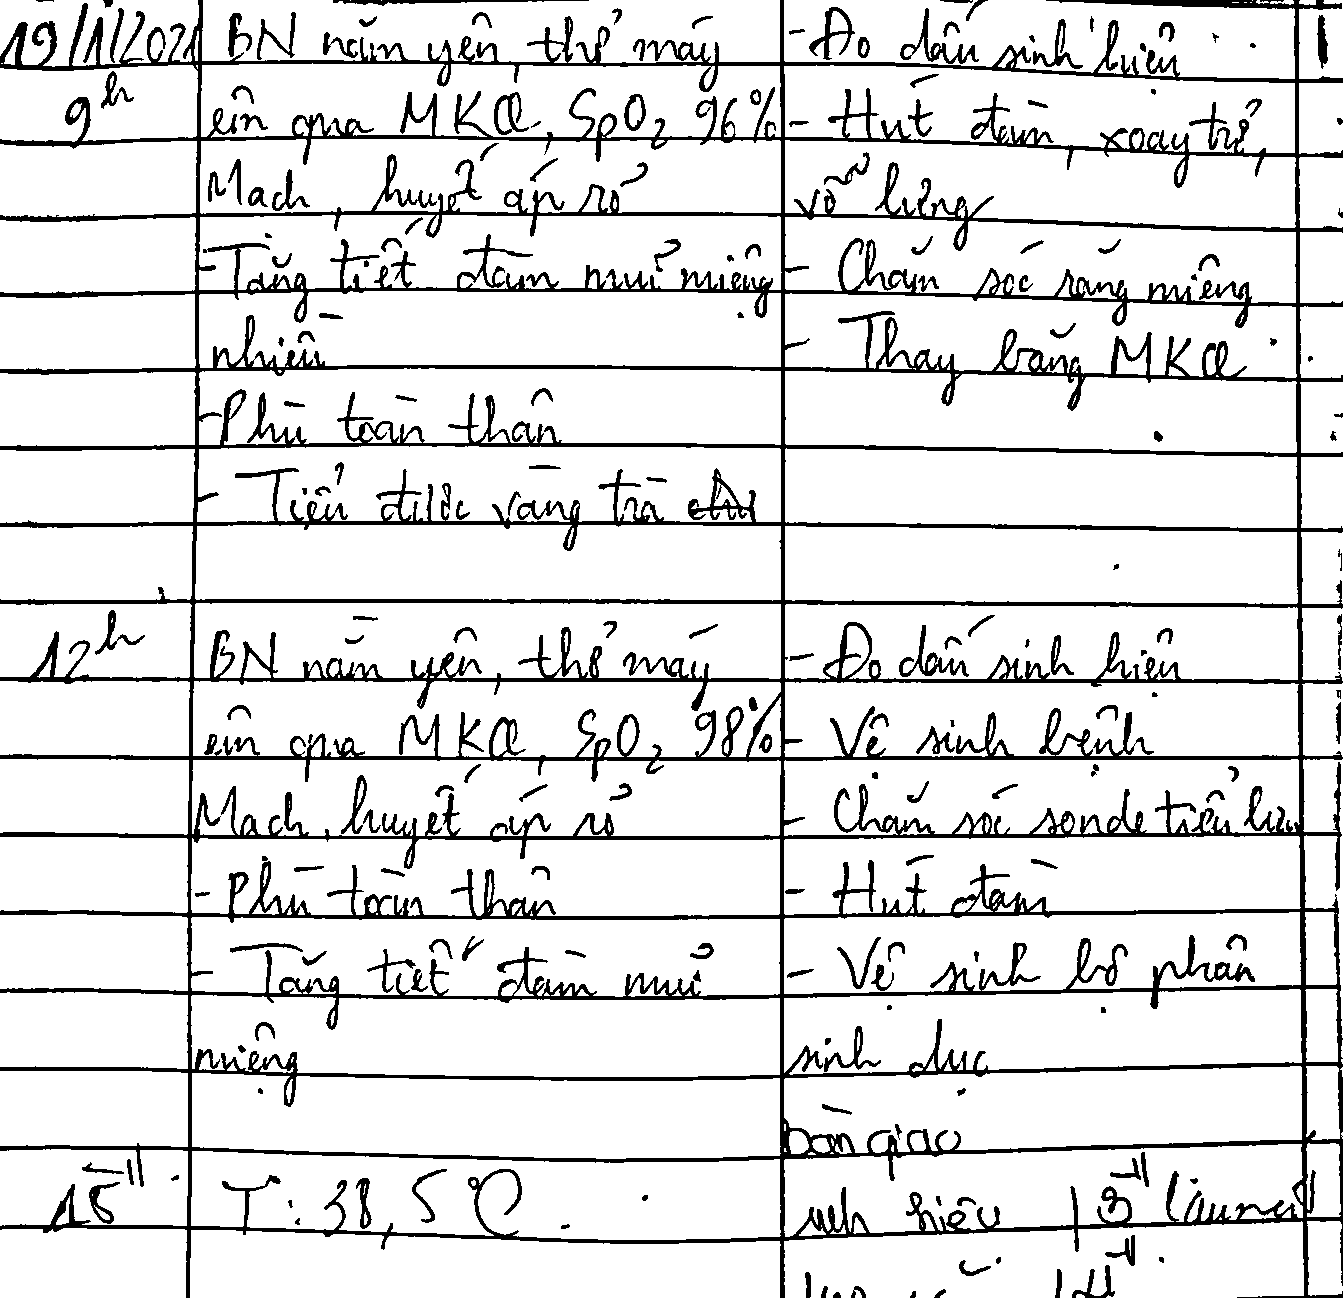 19/1/2021
9h
BN nằm yên, thở máy
êm qua MKQ, SpO2 96%
Mạch, huyết áp rõ
- Tăng tiết đàm mũi miệng
nhiều
- Phù toàn thân
- Tiểu được vàng trà
- Đo dấu sinh hiệu
- Hút đàm, xoay trở,
vỗ lưng
- Chăm sóc răng miệng
- Thay băng MKQ
12h
BN nằm yên, thở máy
êm qua MKQ, SpO2 98%
Mạch, huyết áp rõ
- Phù toàn thân
- Tăng tiết đàm mũi
miệng
- Đo dấu sinh hiệu
- Vệ sinh bệnh
- Chăm sóc sonde tiểu lưu
- Hút đàm
- Vệ sinh bộ phận
sinh dục
bàn giao
15h
T: 38,5°C.
hiệu